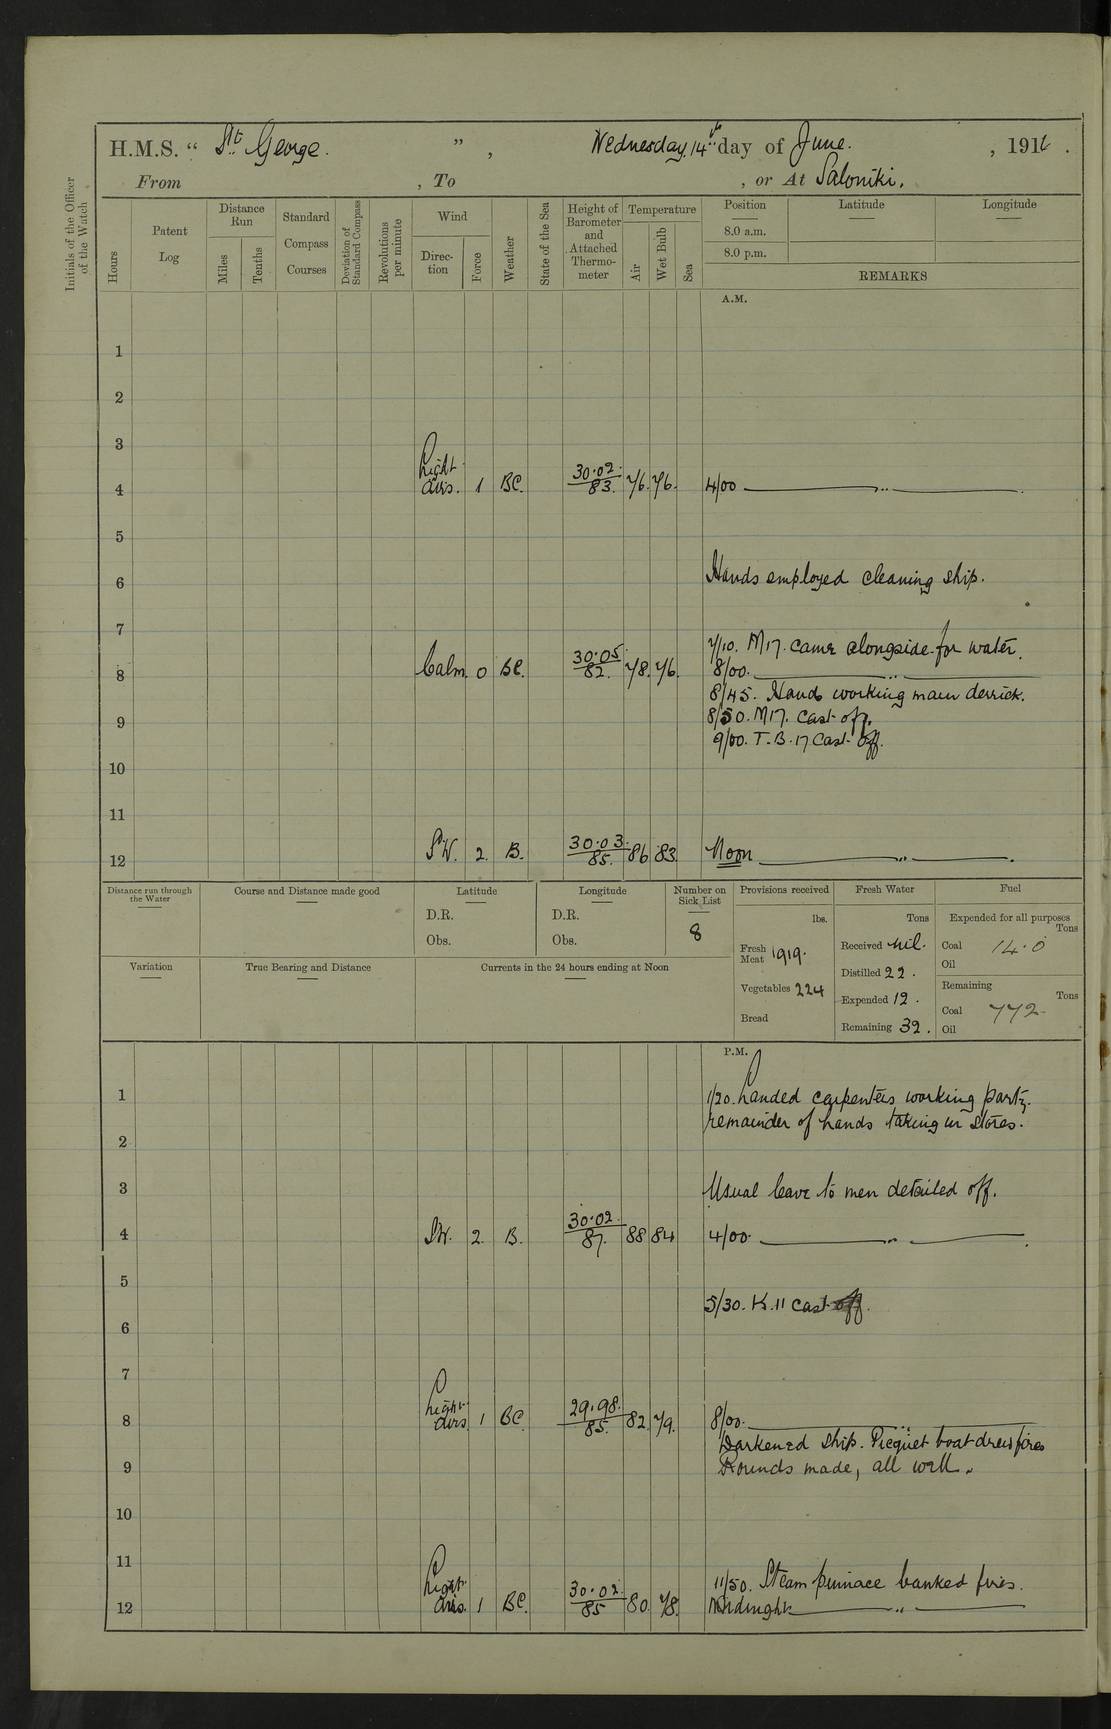 H.M.S. “ St. George. ” , Wednesday, 14th day of June. , 1916 .
From , To , or At Saloniki.
Initials of the Officer of the Watch
Hours
Patent Log
Distance Run
Miles
Tenths
Standard Compass Courses
Deviation of Standard Compass
Revolutions per minute
Wind
Direction
Force
Weather
State of the Sea
Height of Barometer and Attached Thermometer
Temperature
Air
Wet Bulb
Sea
Position
8.0 a.m.
8.0 p.m.
Latitude
Longitude
REMARKS
A.M.
1
2
3
4 Light airs. 1 BC. 30.02. 83. 76. 76. 4/00 ——— „ ———.
5
6 Hands employed cleaning ship.
7
7/10. M17. came alongside for water.
8 Calm. 0 BC. 30.05 82. 78. 76. 8/00. ——— „ ———
8/45. Hands working main derrick.
9 8/50. M17. Cast off.
9/00. T.B.17 Cast off.
10
11
12 SW. 2. B. 30.03. 85. 86 83. Noon ——— „ ———.
Distance run through the Water
Course and Distance made good
Latitude
D.R.
Obs.
Longitude
D.R.
Obs.
Number on Sick List
8
Provisions received
lbs.
Fresh Meat 1919.
Vegetables 224
Bread
Fresh Water
Tons
Received nil.
Distilled 22.
Expended 12.
Remaining 32.
Fuel
Expended for all purposes
Tons
Coal 14.0
Oil
Remaining
Tons
Coal 772.
Oil
Variation
True Bearing and Distance
Currents in the 24 hours ending at Noon
P.M.
1 1/20. Landed carpenters working party.
remainder of hands taking in stores.
2
3 Usual leave to men detailed off.
4 SW. 2. B. 30.02. 87. 88 84 4/00. ——— „ ———.
5
5/30. K.11 cast off.
6
7
8 Light airs 1 BC. 29.98. 85. 82. 79. 8/00. ——— „ ———
Darkened ship. Picquet boat drew fires
9 Rounds made, all well.
10
11
11/50. Steam pinnace banked fires.
12 Light airs. 1 BC. 30.02. 85 80. 78. Midnight ——— „ ———